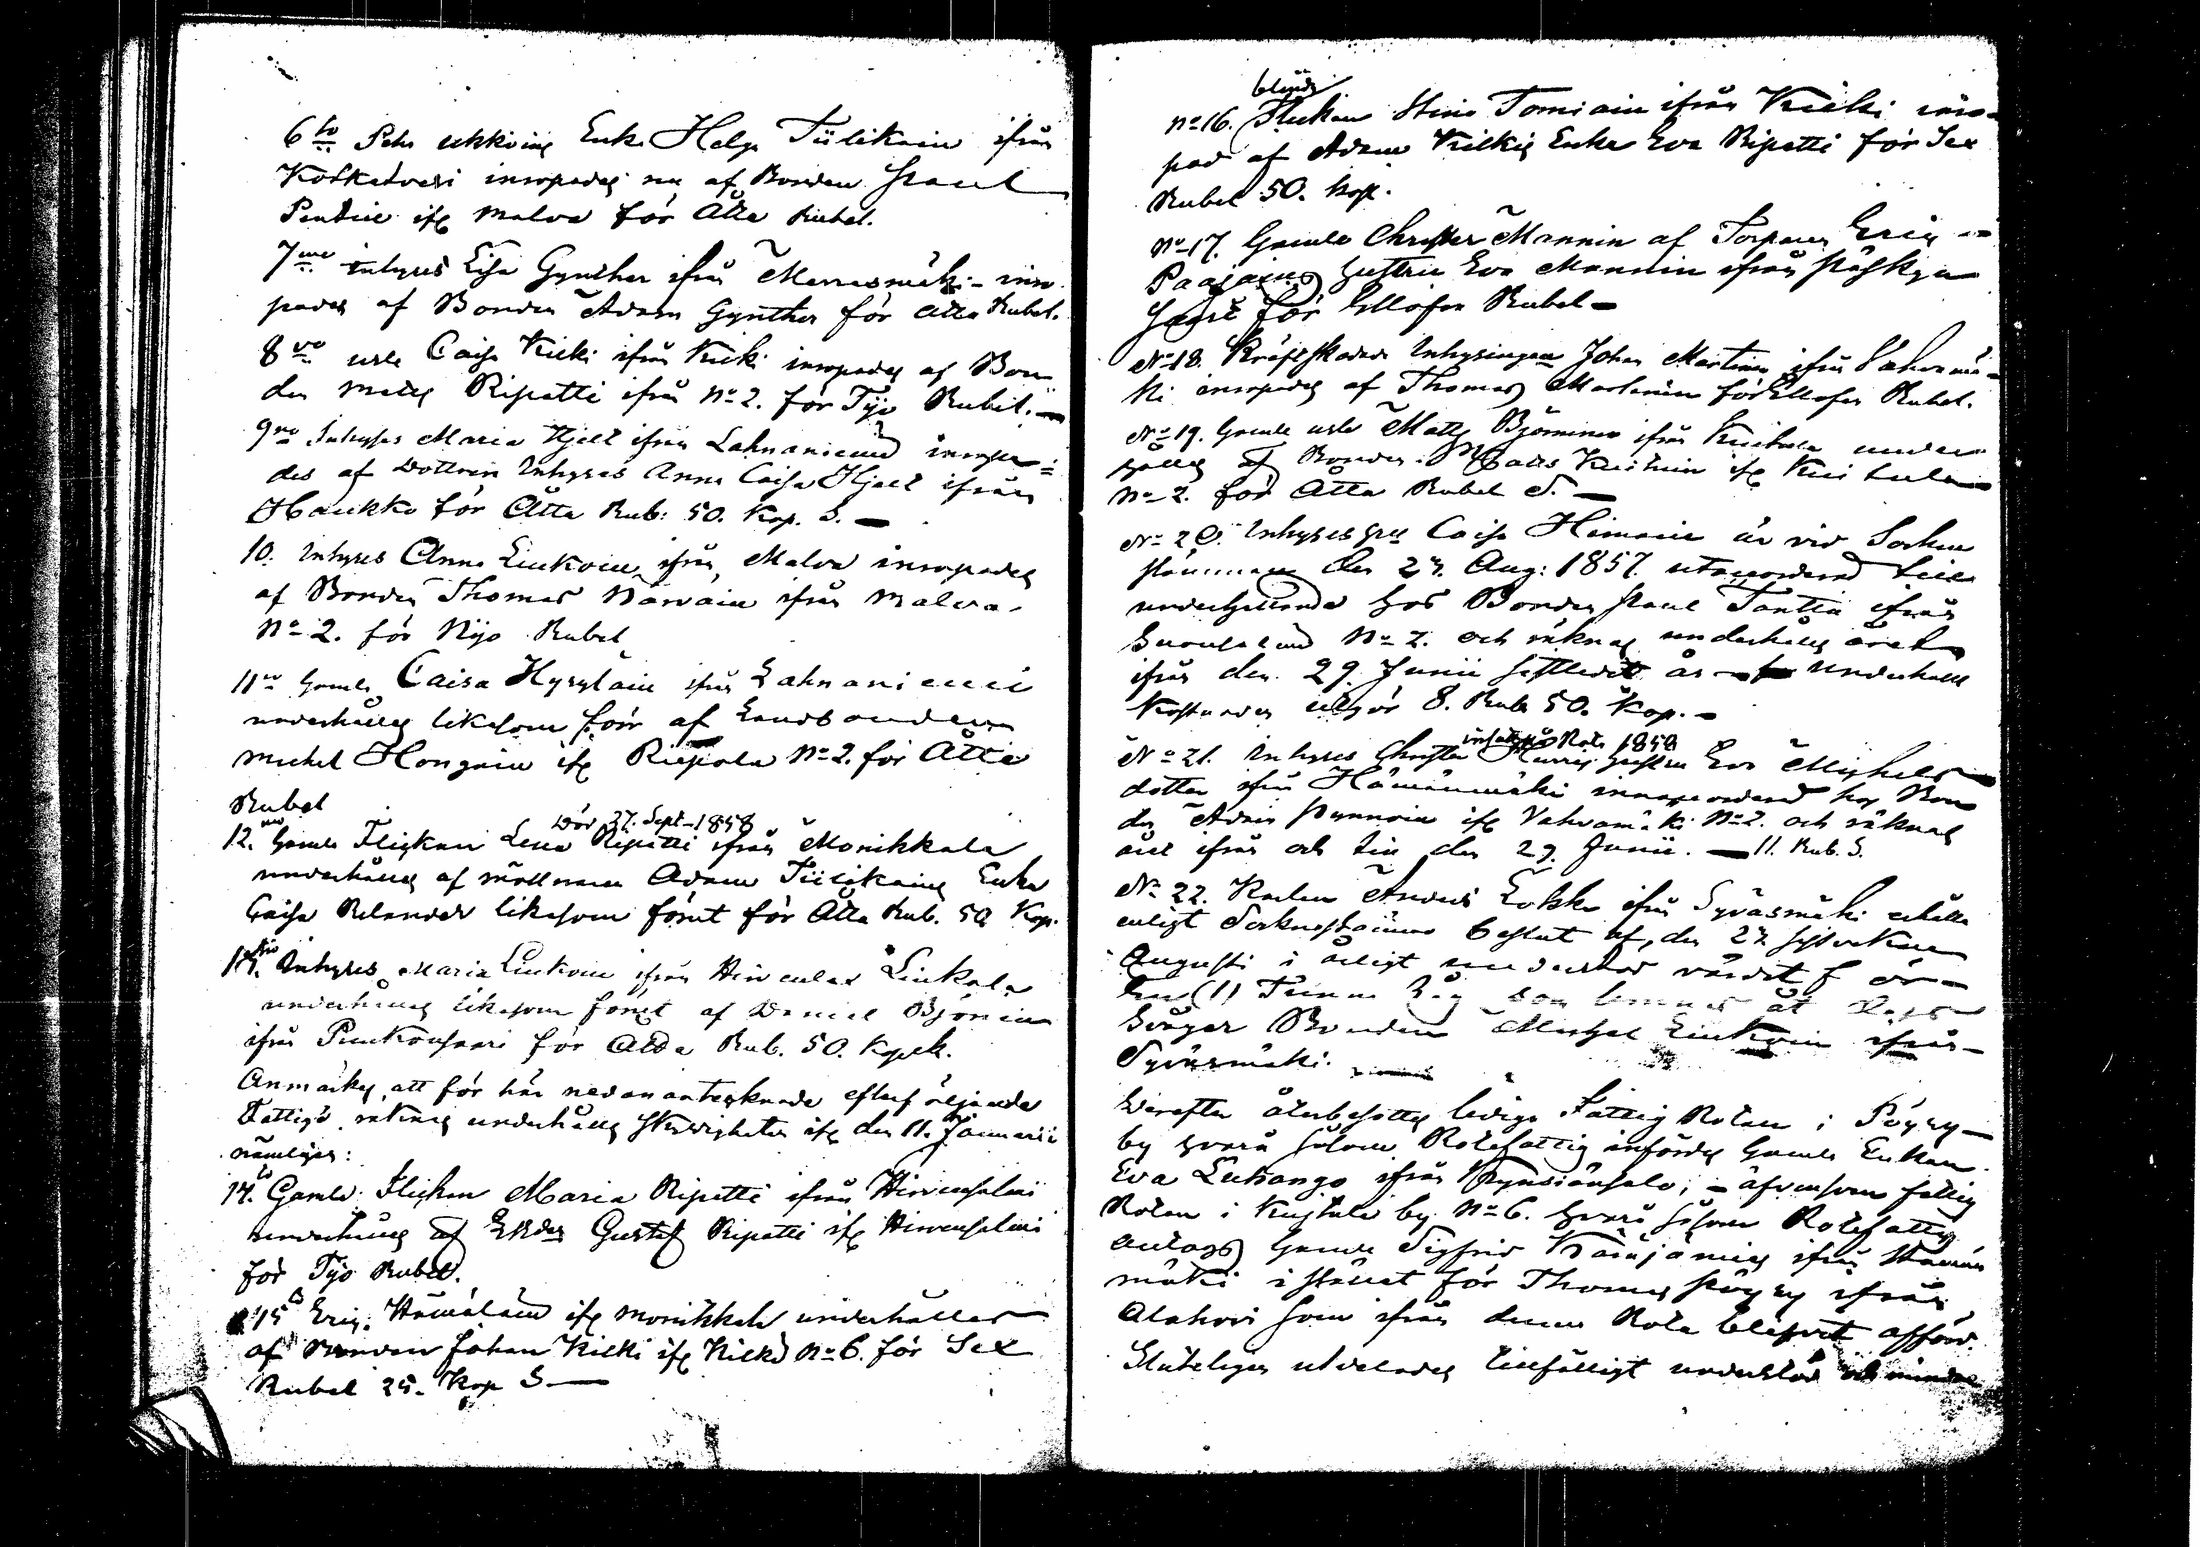 6to Pehr Ukkoins Enka Helga Tiilikain ifrån
Koskatvesi inropades nu af Bonden Paul
Pentine ifr Malva för Åtta Rubel.
7me Inhyses Lisa Gynther ifrån Marrasmäki inro
pades af Bonden Adam Gynther för Åtta Rubel.
8vo usle Caisa Kilki ifrån Kilki inropades af Bon
den Matts Ripatti ifrån No 2. för Tijo Rubel.
9no Inhyses Maria Hjelt ifrån Lahnaniemi inropa=
des af Dottren Inhyses Anna Caisa Hjelt ifrån
Haukka för Åtta Rub: 50. Kop. S.
10. Inhyses Anna Liukoin ifrån Malva inropades
af Bonden Thomas Närväin ifrån Malva
No 2. för Nijo Rubel
11. Gamle Caisa Hyrylain ifrån Lahnaniemi
underhålles likasom förr af Landbonden
Michel Hongain ifr Riepola No 2. för Åtta
Rubel
Död 27. Sept. 1858
12. Gamle Flickan Lena Ripatti ifrån Monikkala
underhålles af mållnaren Adam Tiilikains Enka
Caisa Relander likasom förut för Åtta Rub. 50 Kop.
13. Inhyses Maria Liukoin ifrån Liukala
underhålles likasom förut af Daniel Björnin
ifrån Punkonsaari för Åtta Rub. 50. Kopek.
Anmärkes, att för här nedanantecknade efterföljande
Fattige räknas underhålls skyldigheten ifr den 11. Januarii
nämligen:
14. Gamla Flickan Maria Ripatti ifrån Hirvensalmi
underhålles af Gustaf Ripatti ifr Hirvensalmi
för Tijo Rubel.
15 Eric Hämäläin ifr Monikkala underhålles
af Bonden Johan Kilki ifr Kilki No 6. för Sex
Rubel 25. Kop S.
blinda
No 16. Flickan Stina Tomiain ifrån Kilki inro
pad af Adam Kilkis Enka Eva Ripatti för Sex
Rubel 50. Kop.
No 17. Gamle Christer Mannin af Torparen Eric
Paajains Hustru Eva Mannin ifrån
för Ellofva Rubel
No 18. Inhysingen Johan Martin ifrån Vahvamä
ki inropades af Thomas Martinin för Ellofva Rubel.
No 19. Gamle usle Matts Björninen ifrån Kuitula under
hålles af Bonden Mats Kuitunin ifr Kuitula
No 2. för Åtta Rubel S.
No 20. Inhyses Caisa Himain är vid Sockne
stämman den 27. Aug: 1857. utaccorderad till
underhållande hos Bonden Paul Tantta ifrån
No 2. och räknas underhålls året
ifrån den 29. Junii sistledit år underhålls
Kostnaden utgör 8. Rub 50. Kop.
insatt på Rote 1858
No 21. Inhyses Christer Hurris hustru Eva Michels
dotter ifrån Hämäinmäki innaccorderad hos Bon
den Adam Pynnöin ifr Vahvamäki No 2. och räknas
året ifrån och till den 29. Junii. 11. Rub. S.
No 22. Karlen Anders ifrån Syväsmäki erhåller
enligt Socknestämmans beslut af den 27 sistvekne
Augusti i årligt understöd värdet för
en (1) Tunna Råg som lemnas åt
Bonden Michel Liukoin ifrån
Syväsmäki.
Derefter återbesattes lediga Fattig Roten i Pöyry
by hvars såsom Rotefattig infördes Gamle Enkan
Eva Luhango ifrån Kynsiänsalo; äfvensom fattig
Roten i Kuitula by No 6. hvars såsom Rotefattig
antogs Gamle Sigfrid ifrån
mäki i stället för Thomas Pöyry ifrån
Alahovi som ifrån denne Rote blifvit afförd.
Sluteligen utdelades tillfälligt understöd